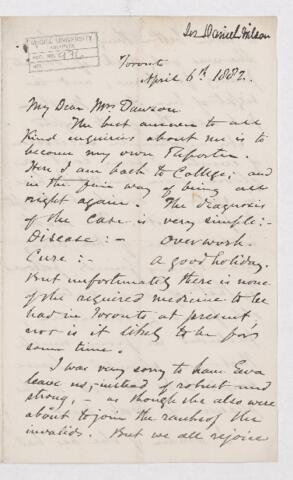 Sir Daniel Wilson
McGILL UNIVERSITY
ACC. NO.
REF.
Toronto
April 6th 1882.
My Dear Mrs Dawson
The best answer to all
kind inquiries about me is to
become my own Reporter.
Here I am back to College; and
in the fair way of being all
right again. The diagnosis
of the case is very simple:-
Disease:- Overwork.
Cure:- a good holiday.
But unfortunately there is none
of the required medicine to be
had in Toronto at present,
nor is it likely to be for
some time.
I was very sorry to have Eva
leave us, instead of robust and
strong, - as though she also were
about to join the ranks of the
invalids. But we all rejoice